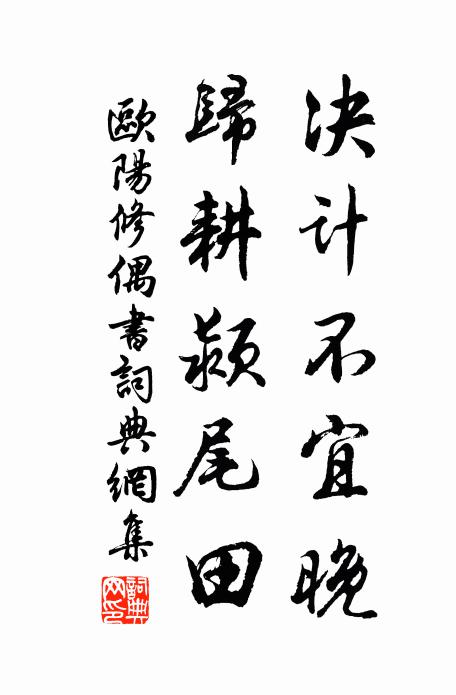 决计不宜晚
歸耕颍尾田
歐陽修偶書詞典網集
詞典
网印